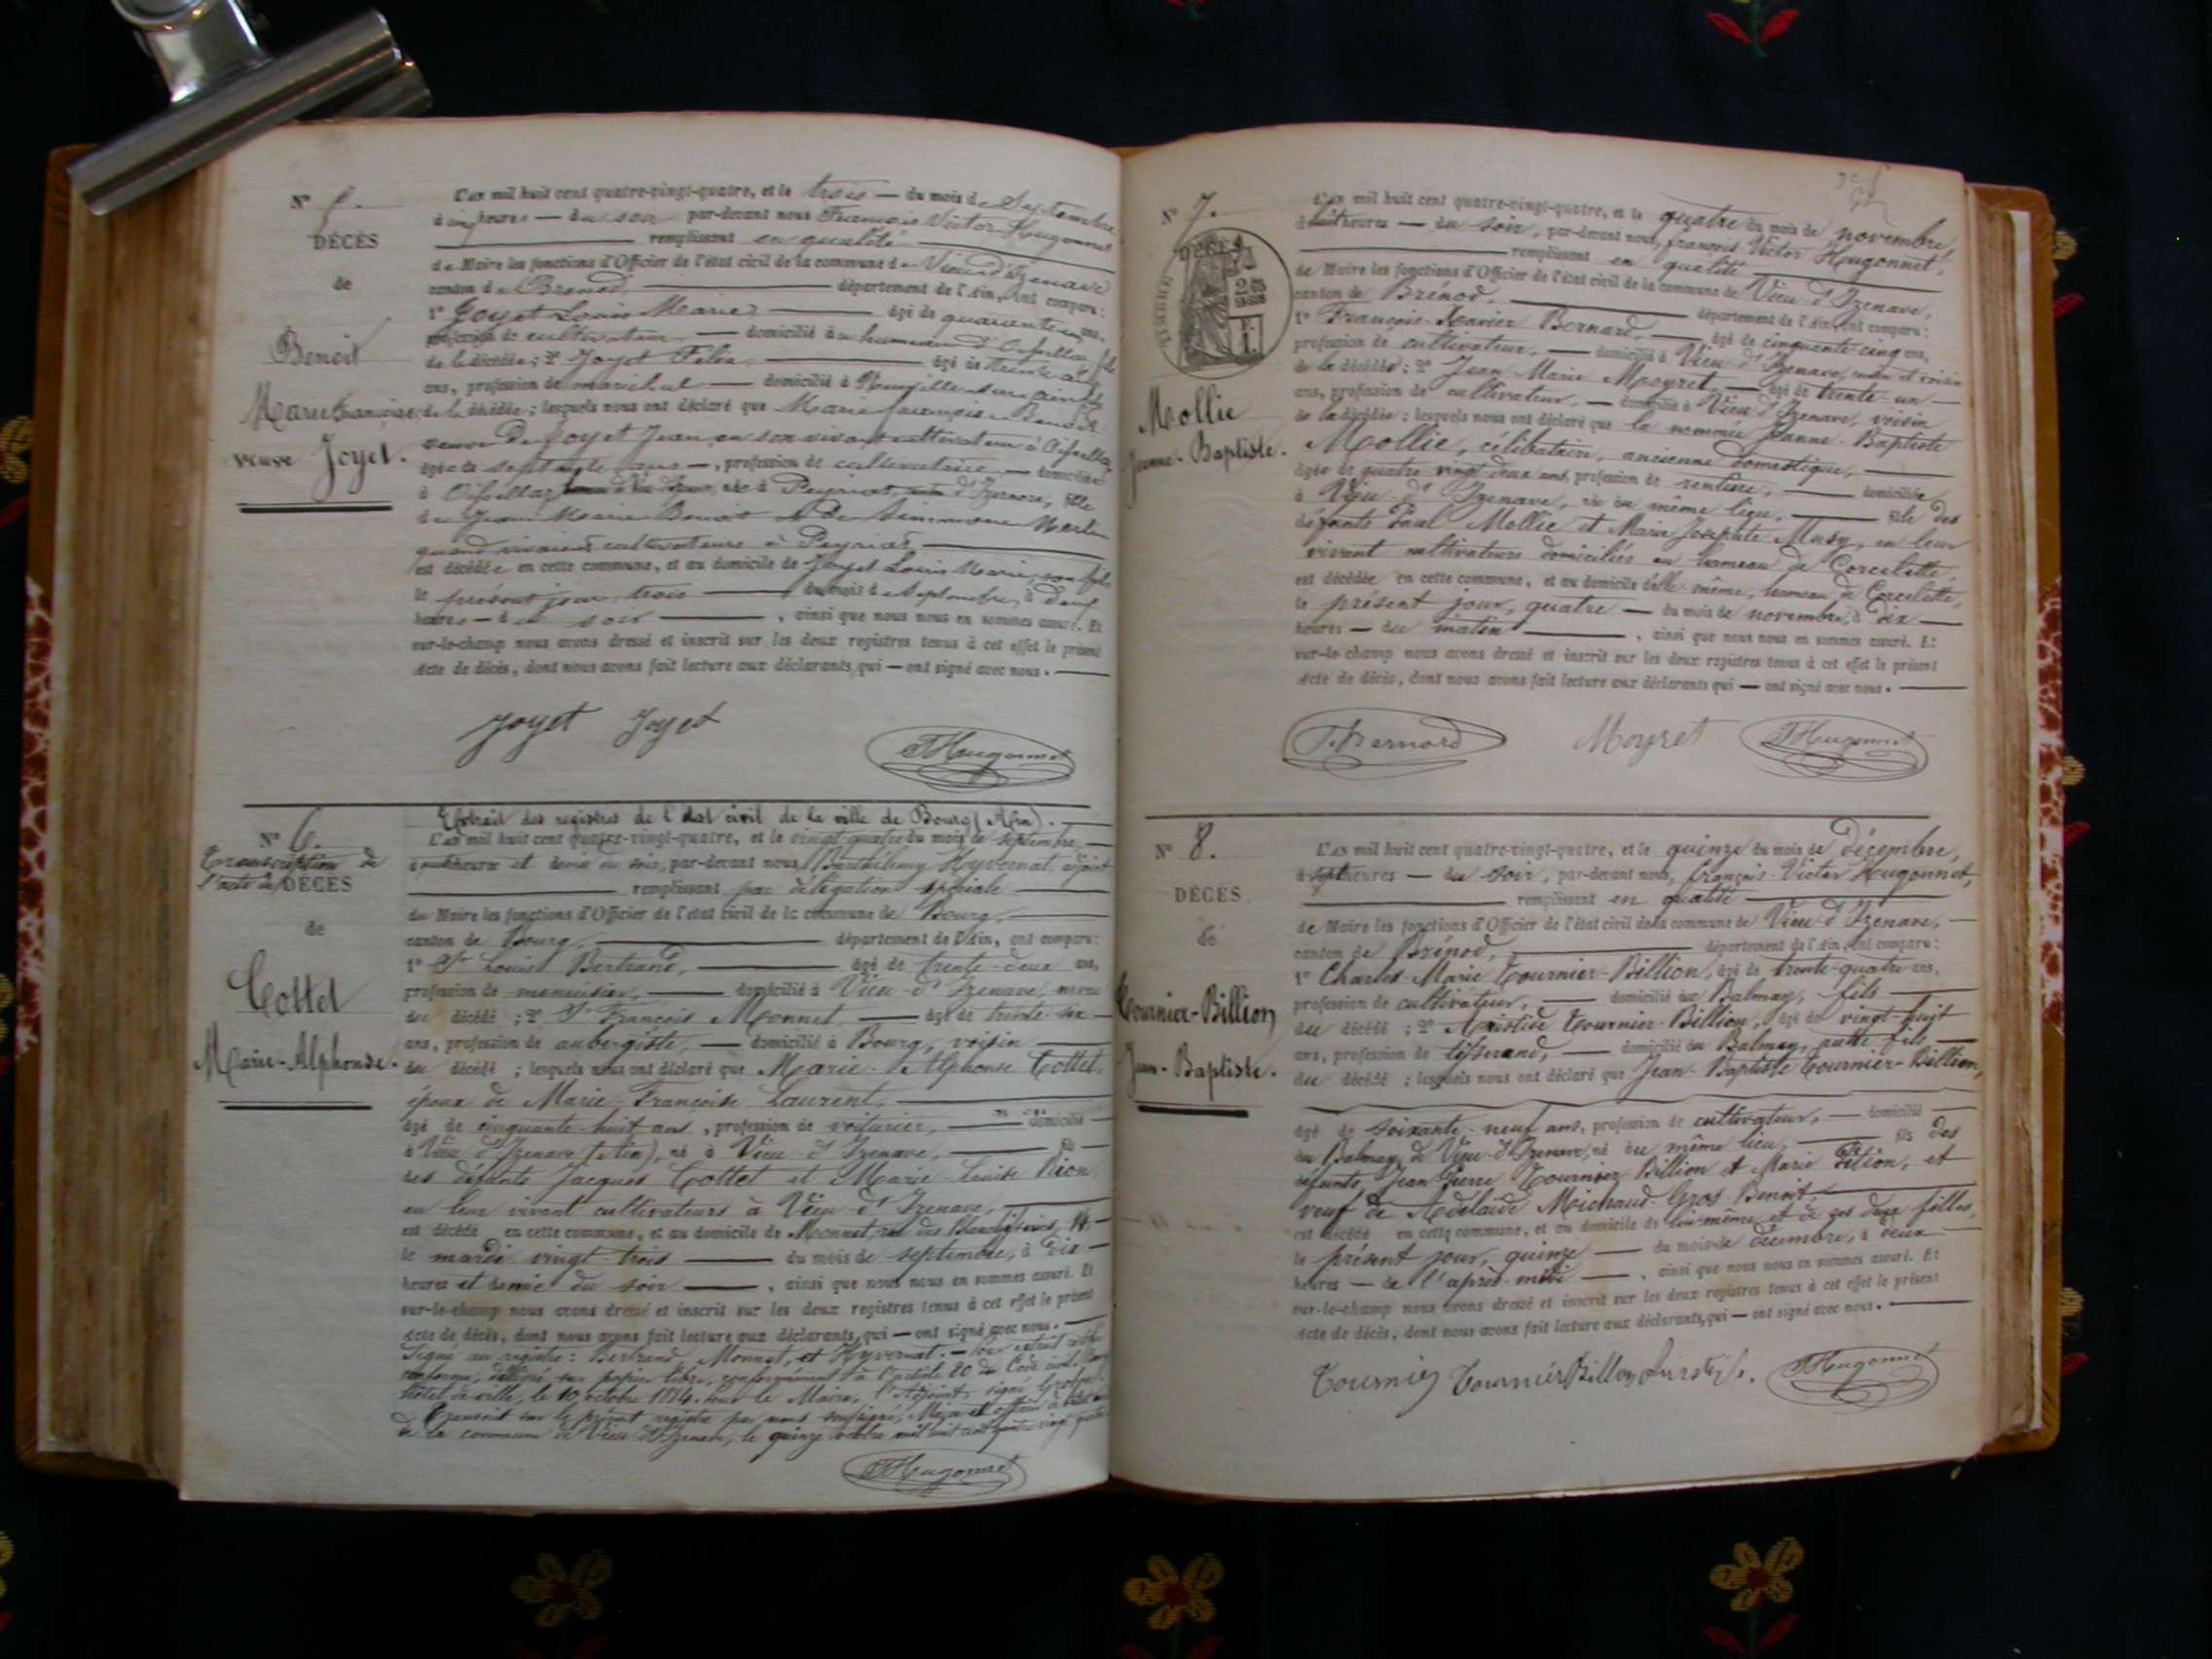 N° 5.
DÉCÈS
de
Benoit
Marie Françoise
veuve Joyet.
L'an mil huit cent quatre-vingt-quatre, et le trois — du mois de Septembre
à cinq heures — du soir par-devant nous François Victor Hugonnet
remplissant en qualité
de Maire les fonctions d'Officier de l'état civil de la commune de Vieu d'Izenave
canton de Brenod département de l'Ain, ont comparu :
1° Joyet Louis Marie âgé de quarante ans,
profession de cultivateur — domicilié au hameau d'Oisellaz fils
de la décédée ; 2° Joyet Félix âgé de trente
ans, profession de maréchal — domicilié à Neuville sur Ain fils
de la décédée ; lesquels nous ont déclaré que Marie françoise Benoit
veuve de Joyet Jean, en son vivant cultivateur à Oisellaz
âgée de septante ans —, profession de cultivatrice — domiciliée
à Oisellaz née à Peyriat, d'Izernore, fille
de Jean Marie Benoit et de
quand vivaient cultivateurs à Peyriat
est décédée en cette commune, et au domicile de Joyet Louis Marie, son fils
le présent jour, trois du mois de Septembre, à deux
heures — du soir , ainsi que nous nous en sommes assuré. Et
sur-le-champ nous avons dressé et inscrit sur les deux registres tenus à cet effet le présent
acte de décès, dont nous avons fait lecture aux déclarants, qui — ont signé avec nous.
Joyet Joyet
FHugonnet
N° 6.
Transcription de
l'acte de DÉCÈS
de
Cottet
Marie-Alphonse.
Extrait des registres de l'état civil de la ville de Bourg (Ain).
L'an mil huit cent quatre-vingt-quatre, et le vingt-quatre du mois de septembre,
heures et demie du soir, par-devant nous, Barthélemy Hyvernat, adjoint
remplissant par délégation spéciale
du Maire les fonctions d'Officier de l'état civil de la commune de Bourg,
canton de Bourg, département de l'Ain, ont comparu :
1° Sr Louis Bertrand, âgé de trente-deux ans,
profession de menuisier, domicilié à Vieu-d'Izenave, neveu
du décédé ; 2° Sr François Monnet, — âgé de trente-six
ans, profession de aubergiste, — domicilié à Bourg, voisin
du décédé ; lesquels nous ont déclaré que Marie-Alphonse Cottet,
époux de Marie-Françoise Laurent,
âgé de cinquante-huit ans, profession de voiturier, domicilié
à Vieu-d'Izenave (Ain), né à Vieu-d'Izenave, fils
des défunts Jacques Cottet et Marie-Louise Rion,
en leur vivant cultivateurs à Vieu-d'Izenave,
est décédé en cette commune, et au domicile de Monnet, rue des Blanchisseries, 14,
le mardi vingt-trois du mois de septembre, à dix
heures et demie du soir , ainsi que nous nous en sommes assuré. Et
sur-le-champ nous avons dressé et inscrit sur les deux registres tenus à cet effet le présent
acte de décès, dont nous avons fait lecture aux déclarants, qui — ont signé avec nous.
Signé au registre : Bertrand, Monnet, et Hyvernat. — Pour extrait
conforme, délivré sur papier libre, conformément à l'article 80 du Code civil.
Hôtel de ville, le 10 octobre 1884. Pour le Maire, l'Adjoint, signé
Transcrit sur le présent registre par nous soussigné, Maire et officier
de la commune de Vieu-d'Izenave, le quinze octobre mil huit cent quatre-vingt-quatre
FHugonnet
N° 7.
DÉCÈS
TIMBRE
Mollie
Jeanne-Baptiste.
L'an mil huit cent quatre-vingt-quatre, et le quatre du mois de novembre,
à huit heures — du soir, par-devant nous, françois Victor Hugonnet,
remplissant en qualité
de Maire les fonctions d'Officier de l'état civil de la commune de Vieu-d'Izenave,
canton de Brénod, département de l'Ain, ont comparu :
1° François-Xavier Bernard, âgé de cinquante-cinq ans,
profession de cultivateur, — domicilié à Vieu-d'Izenave, voisin
de la décédée ; 2° Jean Marie Moyret, — âgé de trente-un
ans, profession de cultivateur, — domicilié à Vieu-d'Izenave, voisin
de la décédée ; lesquels nous ont déclaré que la nommée Jeanne-Baptiste
Mollie, célibataire, ancienne domestique,
âgée de quatre-vingt-deux ans, profession de rentière, domiciliée
à Vieu-d'Izenave, née au même lieu, fille des
défunts Paul Mollie et Marie Josephte Musy, en leur
vivant cultivateurs domiciliés au hameau de Corcelette,
est décédée en cette commune, et au domicile d'elle-même, hameau de Corcelette,
le présent jour, quatre — du mois de novembre, à dix
heures — du matin , ainsi que nous nous en sommes assuré. Et
sur-le-champ nous avons dressé et inscrit sur les deux registres tenus à cet effet le présent
acte de décès, dont nous avons fait lecture aux déclarants qui — ont signé avec nous.
F. Bernard Moyret FHugonnet
N° 8.
DÉCÈS
de
Tournier-Billion
Jean-Baptiste.
L'an mil huit cent quatre-vingt-quatre, et le quinze du mois de décembre,
à sept heures — du soir, par-devant nous, françois-Victor Hugonnet,
remplissant en qualité
de Maire les fonctions d'Officier de l'état civil de la commune de Vieu-d'Izenave,
canton de Brénod, département de l'Ain, ont comparu :
1° Charles-Marie Tournier-Billion, âgé de trente-quatre ans,
profession de cultivateur, — domicilié au Balmay, fils
du décédé ; 2° Aristide Tournier-Billion, âgé de vingt-huit
ans, profession de tisserand, — domicilié au Balmay, autre fils
du décédé ; lesquels nous ont déclaré que Jean-Baptiste Tournier-Billion,
âgé de soixante-neuf ans, profession de cultivateur, — domicilié
au Balmay, de Vieu-d'Izenave, né au même lieu, fils des
défunts Jean Pierre Tournier Billion et Marie , et
veuf de Adélaïde Moichaud-Gros-Benoit,
est décédé en cette commune, et au domicile de lui-même et de ses deux filles,
le présent jour, quinze — du mois de décembre, à deux
heures — de l'après-midi , ainsi que nous nous en sommes assuré. Et
sur-le-champ nous avons dressé et inscrit sur les deux registres tenus à cet effet le présent
acte de décès, dont nous avons fait lecture aux déclarants, qui — ont signé avec nous.
Tournier Tournier Billion FHugonnet